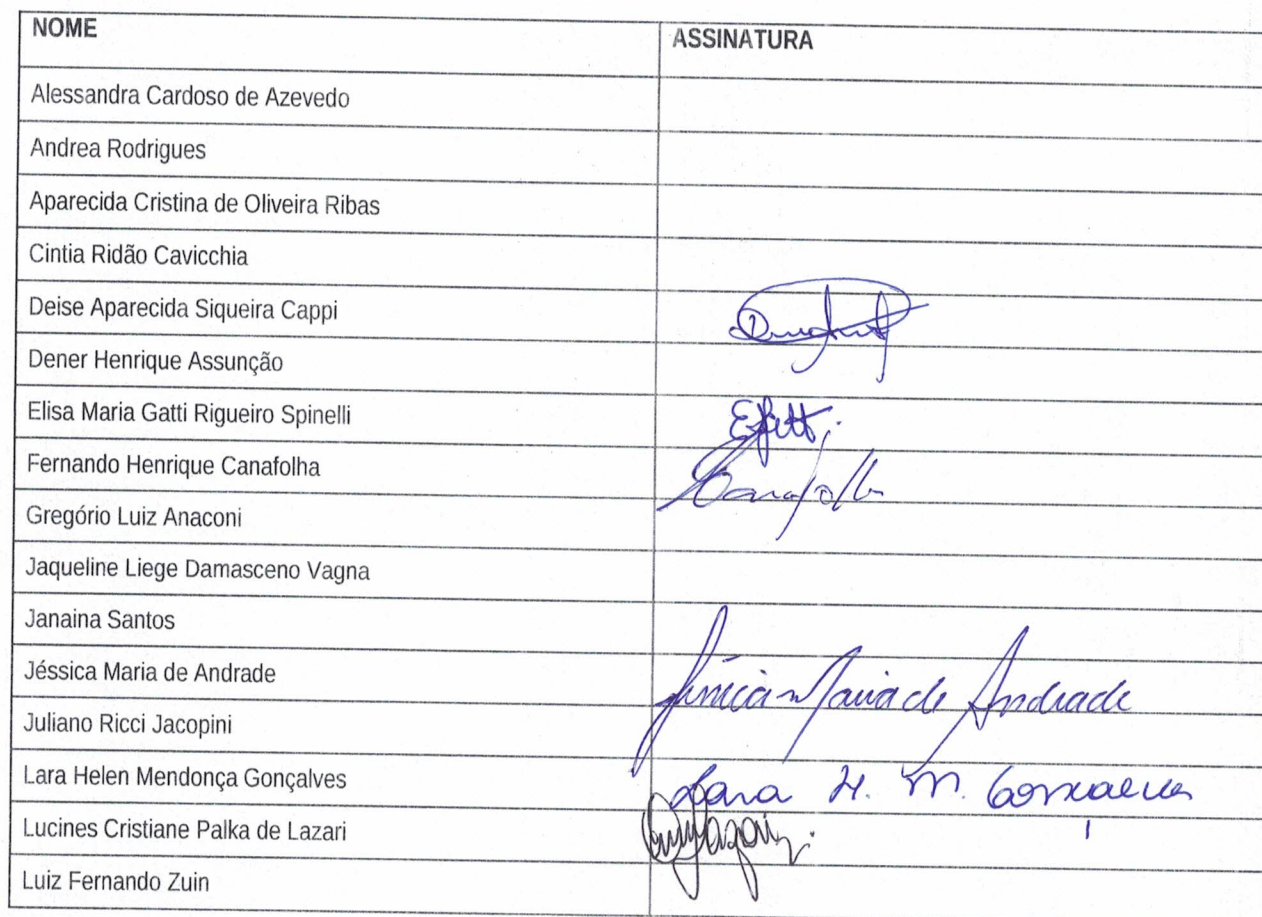 NOME ASSINATURA
Alessandra Cardoso de Azevedo
Andrea Rodrigues
Aparecida Cristina de Oliveira Ribas
Cintia Ridão Cavicchia
Deise Aparecida Siqueira Cappi
Dener Henrique Assunção
Elisa Maria Gatti Rigueiro Spinelli
Fernando Henrique Canafolha Canafolha
Gregório Luiz Anaconi
Jaqueline Liege Damasceno Vagna
Janaina Santos
Jéssica Maria de Andrade Jéssica Maria de Andrade
Juliano Ricci Jacopini
Lara Helen Mendonça Gonçalves Lara H. M. Gonçalves
Lucines Cristiane Palka de Lazari
Luiz Fernando Zuin